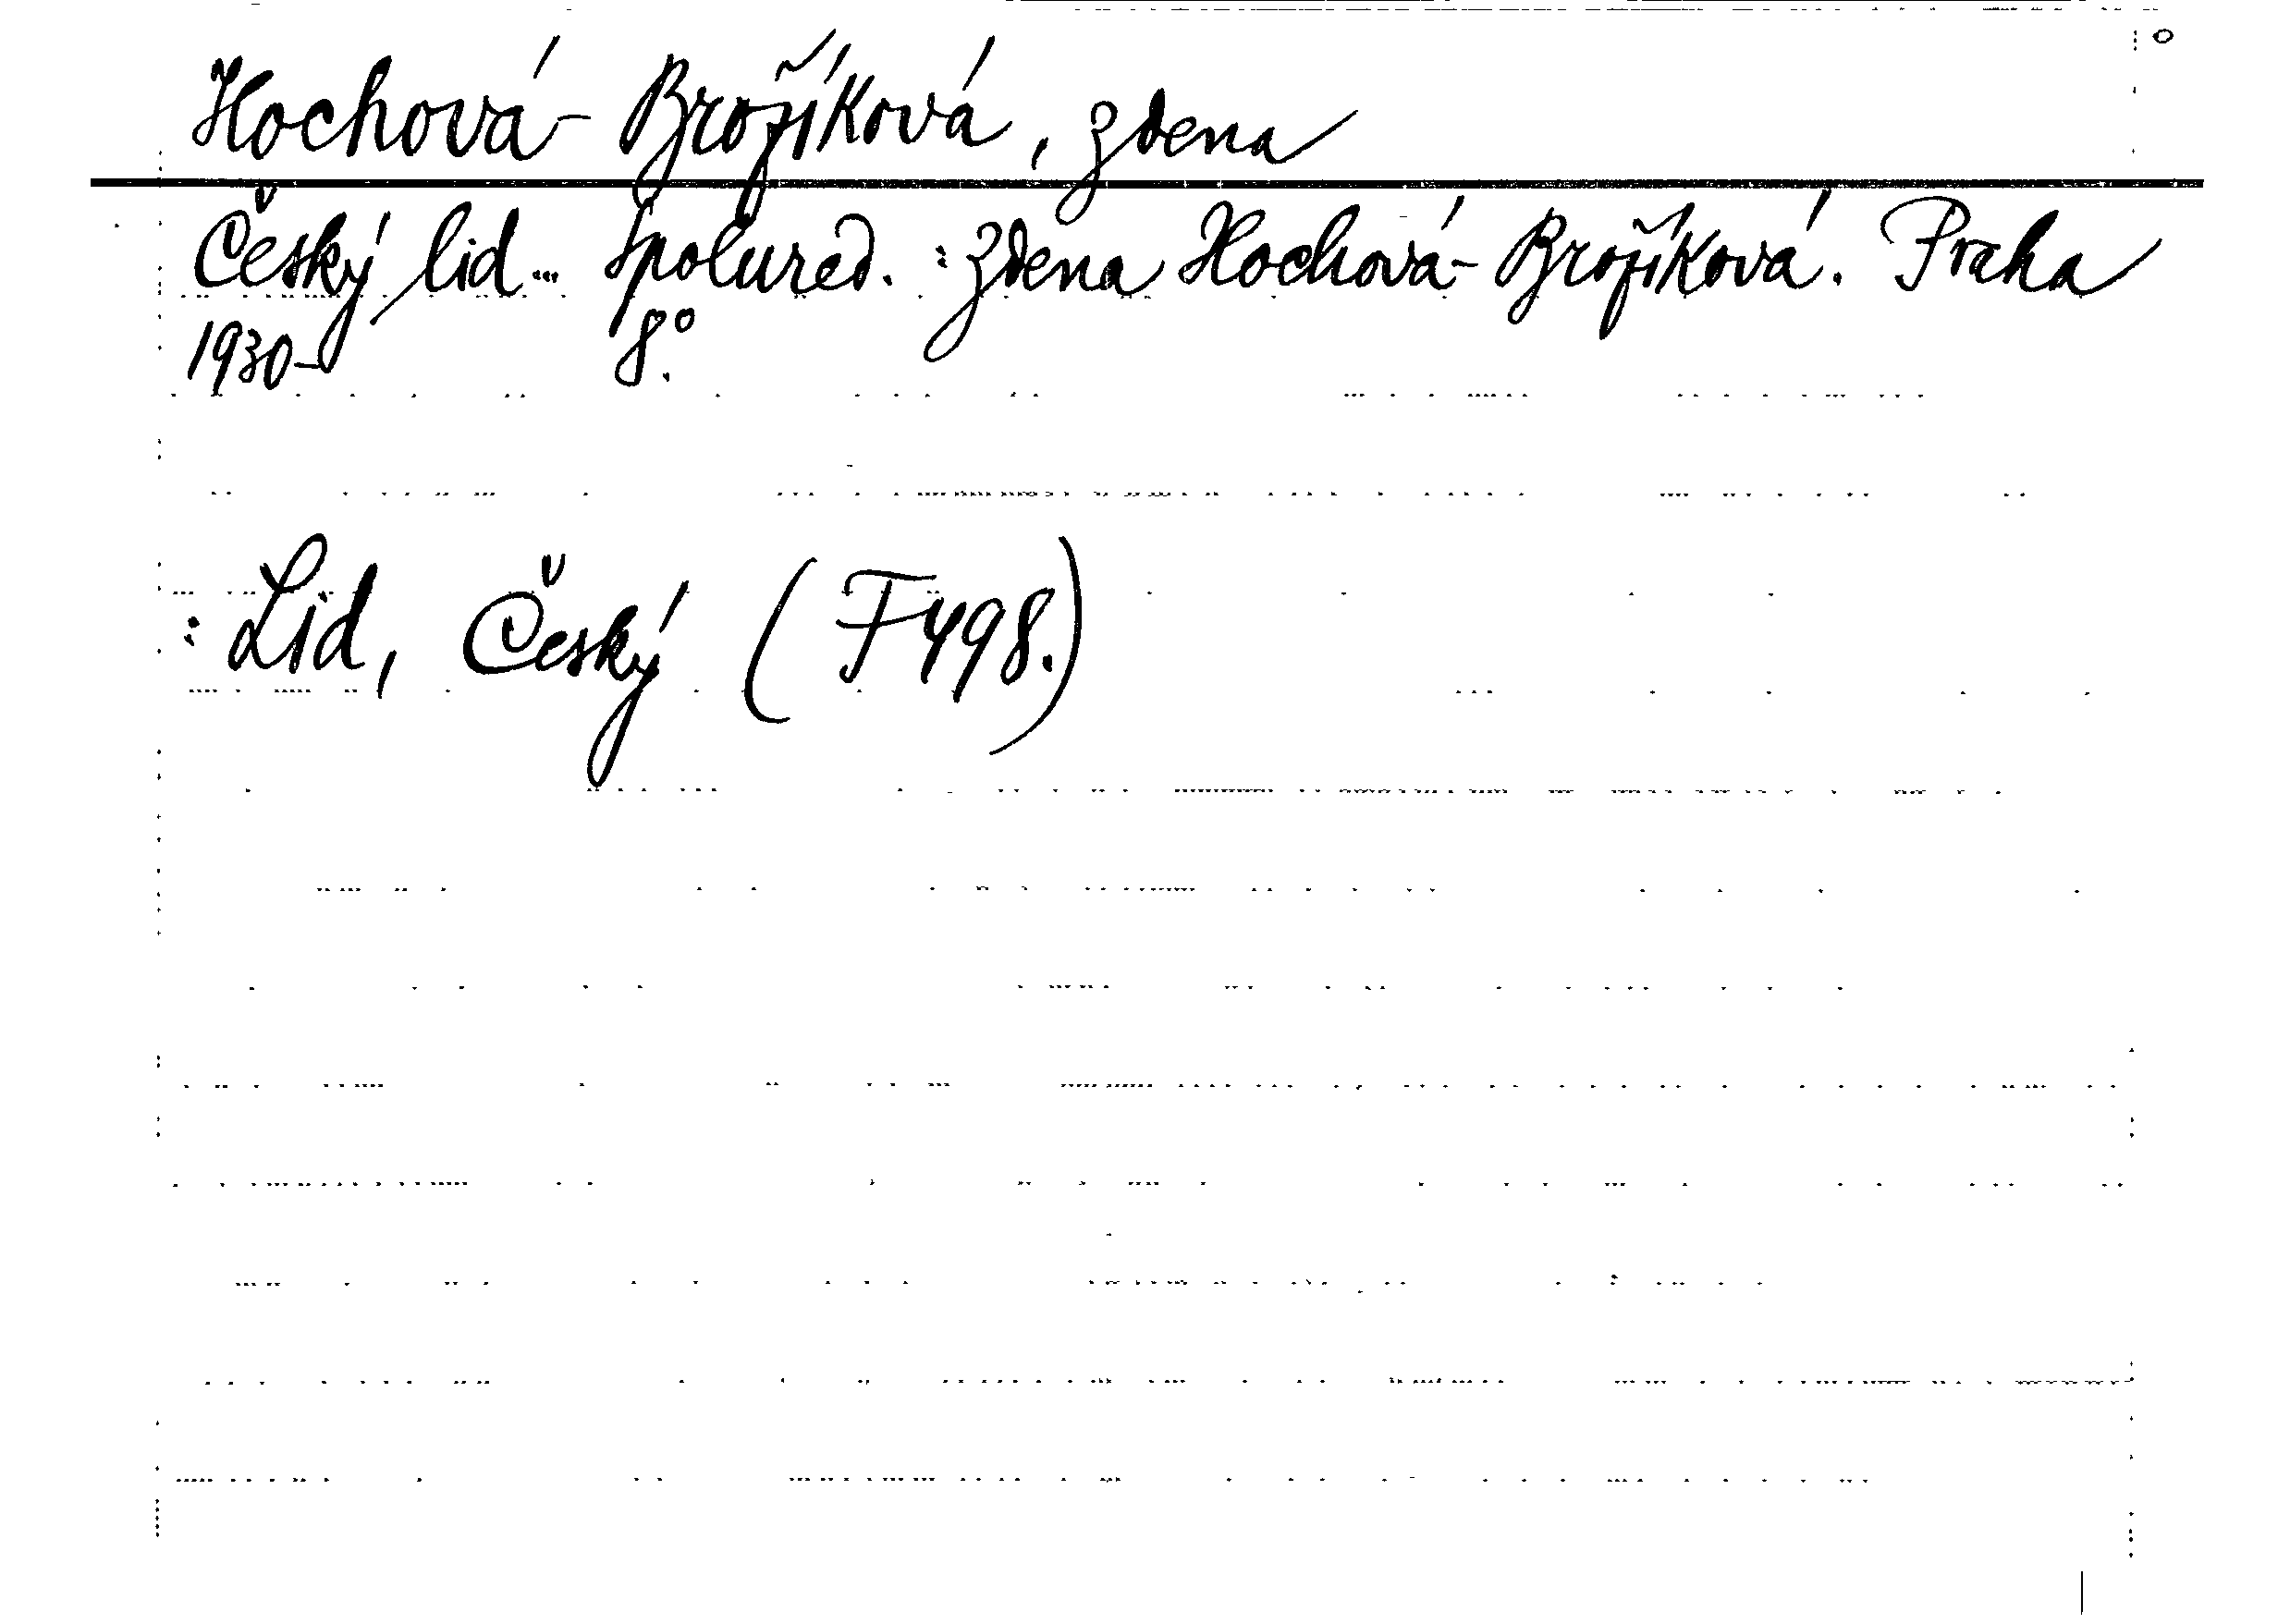 Hochová-Brožíková, Zdena
Český lid... Spolured.: Zdena Hochová-Brožíková. Praha
1930- 8°.
: Lid, Český (F498.)